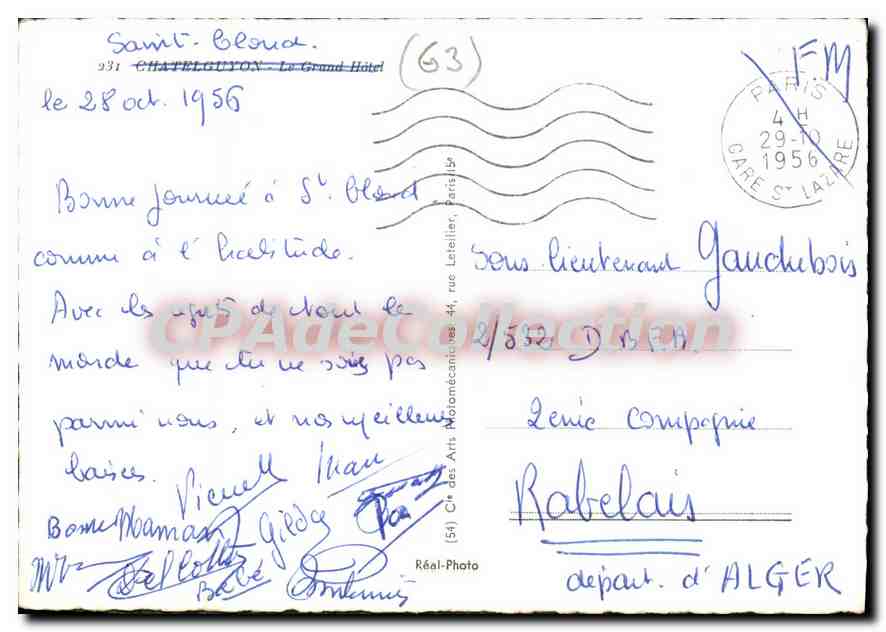 Saint-Cloud.
931 CHATELGUYON - Le Grand Hôtel
(63)
le 28 oct. 1956
F.M
PARIS
4 H
29-10
1956
GARE St LAZARE
Bonne journée à St Cloud
comme à l'habitude.
Avec les regrets de tout le
monde que tu ne sois pas
parmi nous, et nos meilleurs
baisers.
Pierrette
Bonne Maman
Gilda
Bébé
Sous lieutenant Gauchebois
2/532 D B F.A.
2eme Compagnie
Rabelais
départ. d'ALGER
(54) Cie des Arts Photomécaniques 44, rue Letellier, Paris-15e
Réal-Photo
CPAdeCollection